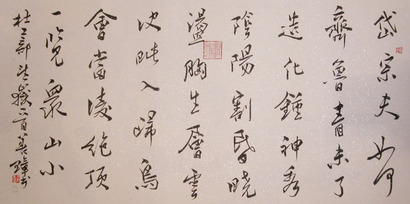 岱宗夫如何
齊魯青未了
造化鍾神秀
陰陽割昏曉
盪胸生層雲
決眦入歸鳥
會當凌絕頂
一覽眾山小
杜工部望嶽